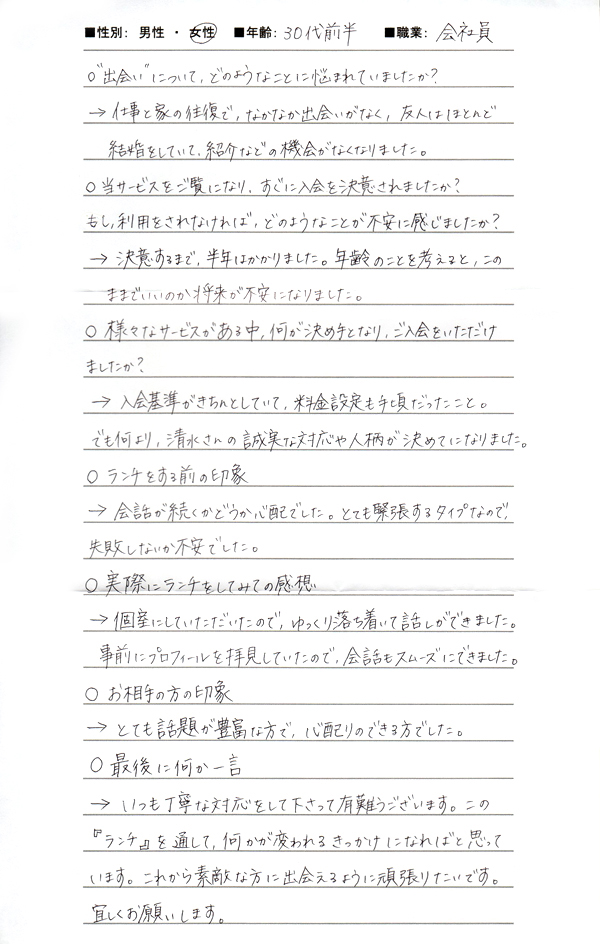 ■性別: 男性 ・ 女性 ■年齢: 30代前半 ■職業: 会社員
○"出会い"について、どのようなことに悩まれていましたか?
→ 仕事と家の往復で、なかなか出会いがなく、友人はほとんど
結婚をしていて、紹介などの機会がなくなりました。
○当サービスをご覧になり、すぐに入会を決意されましたか?
もし、利用をされなければ、どのようなことが不安に感じましたか?
→ 決意するまで、半年はかかりました。年齢のことを考えると、この
ままでいいのか将来が不安になりました。
○ 様々なサービスがある中、何が決め手となり、ご入会をいただけ
ましたか?
→ 入会基準がきちんとしていて、料金設定も手頃だったこと。
でも何より、清水さんの誠実な対応や人柄が決めてになりました。
○ ランチをする前の印象
→ 会話が続くかどうか心配でした。とても緊張するタイプなので、
失敗しないか不安でした。
○ 実際にランチをしてみての感想
→ 個室にしていただいたので、ゆっくり落ち着いて話しができました。
事前にプロフィールを拝見していたので、会話もスムーズにできました。
○ お相手の方の印象
→ とても話題が豊富な方で、心配りのできる方でした。
○ 最後に何か一言
→ いつも丁寧な対応をして下さって有難うございます。この
『ランチ』を通して、何かが変われるきっかけになればと思って
います。これから素敵な方に出会えるように頑張りたいです。
宜しくお願いします。